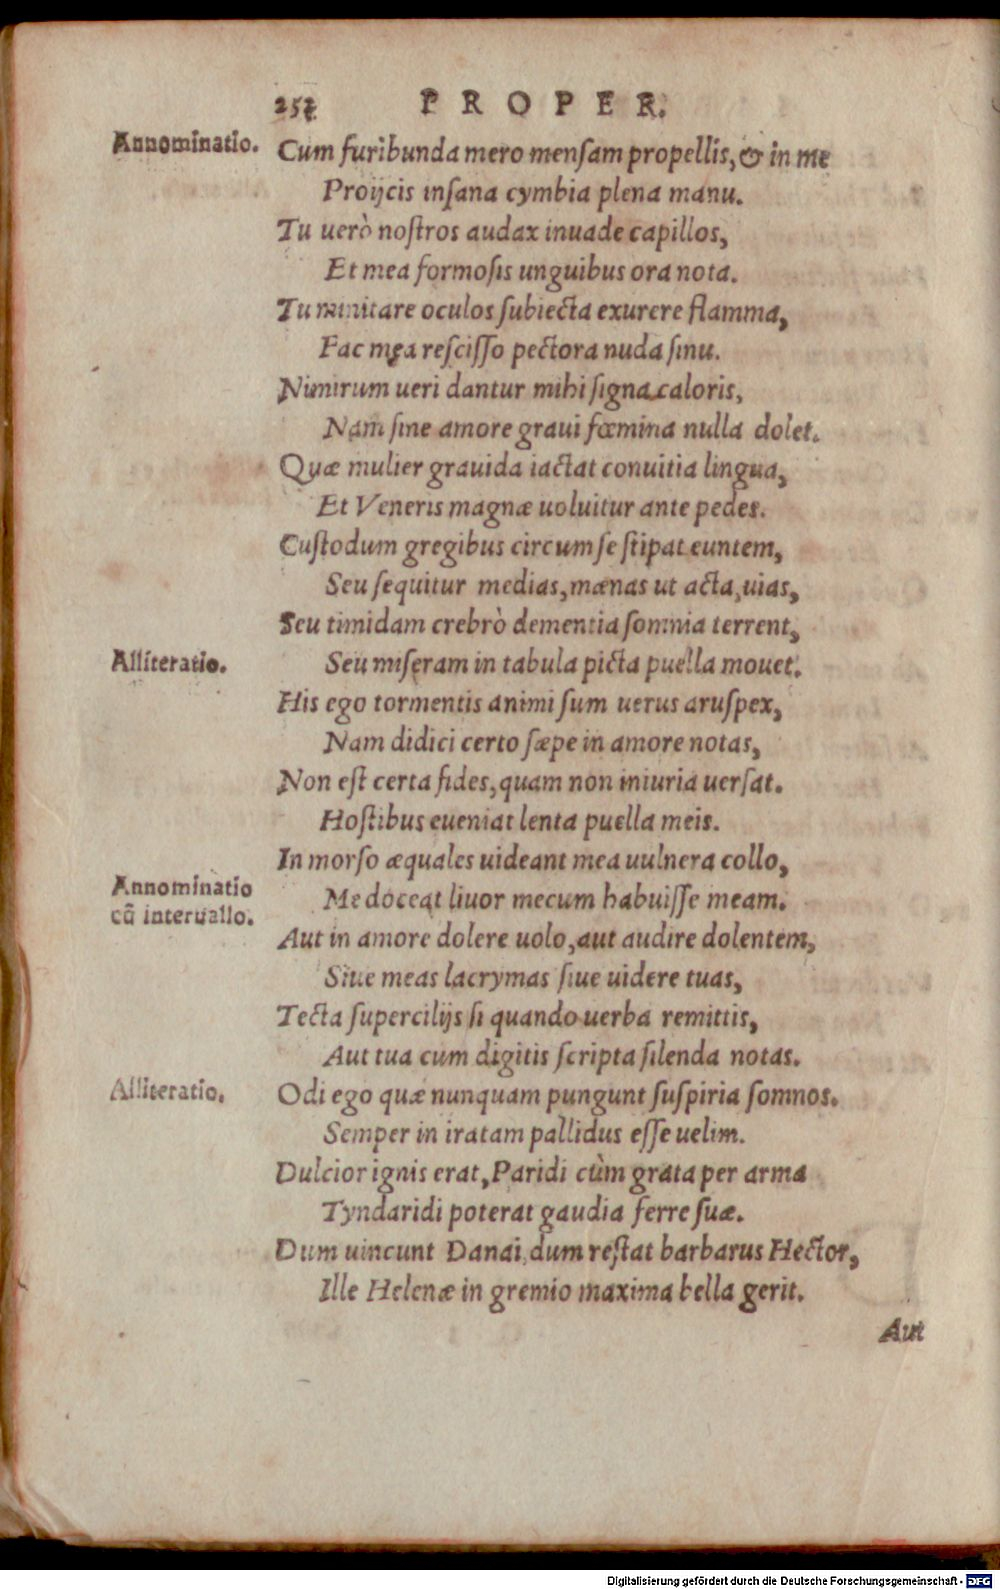 252 PROPER.
Annominatio.
Cum furibunda mero menſam propellis, & in me
Proijcis inſana cymbia plena manu.
Tu uerò noſtros audax inuade capillos,
Et mea formoſis unguibus ora nota.
Tu minitare oculos ſubiecta exurere flamma,
Fac mea reſciſſo pectora nuda ſinu.
Nimirum ueri dantur mihi ſigna caloris,
Nam ſine amore graui fœmina nulla dolet.
Quæ mulier grauida iactat conuitia lingua,
Et Veneris magnæ uoluitur ante pedes.
Cuſtodum gregibus circum ſe ſtipat euntem,
Seu ſequitur medias, mænas ut acta, uias,
Seu timidam crebrò dementia ſomnia terrent,
Alliteratio.
Seu miſeram in tabula picta puella mouet.
His ego tormentis animi ſum uerus aruſpex,
Nam didici certo ſæpe in amore notas,
Non eſt certa fides, quam non iniuria uerſat.
Hoſtibus eueniat lenta puella meis.
In morſo æquales uideant mea uulnera collo,
Annominatio
cū interuallo.
Me doceat liuor mecum habuiſſe meam.
Aut in amore dolere uolo, aut audire dolentem,
Siue meas lacrymas ſiue uidere tuas,
Tecta ſupercilijs ſi quando uerba remittis,
Aut tua cum digitis ſcripta ſilenda notas.
Alliteratio.
Odi ego quæ nunquam pungunt ſuſpiria ſomnos.
Semper in iratam pallidus eſſe uelim.
Dulcior ignis erat, Paridi cùm grata per arma
Tyndaridi poterat gaudia ferre ſuæ.
Dum uincunt Danai, dum reſtat barbarus Hector,
Ille Helenæ in gremio maxima bella gerit.
Aut
Digitalisierung gefördert durch die Deutsche Forschungsgemeinschaft - DFG